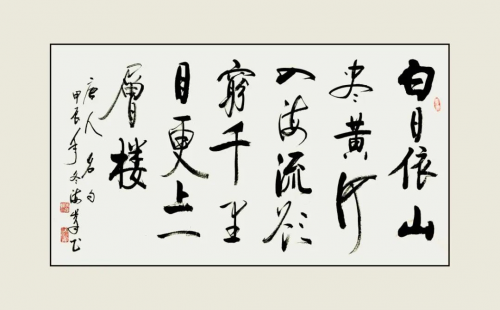 白日依山
尽黄河
入海流欲
窮千里
目更上一
層楼
唐人名句
甲辰年冬海书